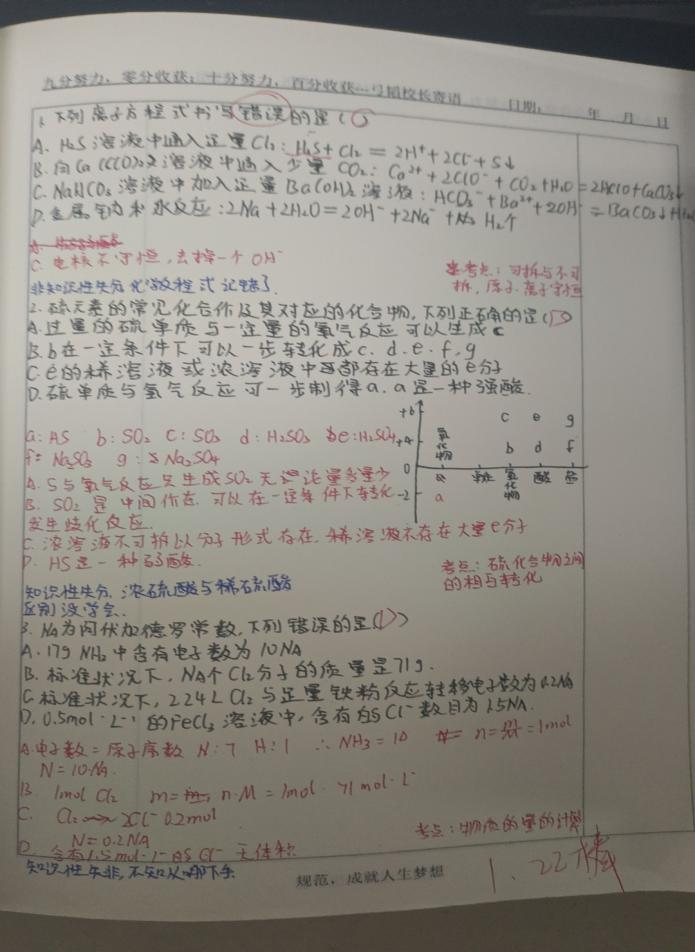 九分努力，零分收获；十分努力，百分收获 校长寄语 日期： 年 月 日
1.下列离子方程式书写错误的是( )
A. H₂S溶液中通入足量Cl₂：H₂S+Cl₂=2H⁺+2Cl⁻+S↓
B.向Ca(ClO)₂溶液中通入少量CO₂：Ca²⁺+2ClO⁻+CO₂+H₂O=2HClO+CaCO₃↓
C. NaHCO₃溶液中加入足量Ba(OH)₂溶液：HCO₃⁻+Ba²⁺+2OH⁻=BaCO₃↓+H₂O
D.金属钠和水反应：2Na+2H₂O=2OH⁻+2Na⁺+H₂↑
C.电核不守恒，去掉一个OH⁻
考点：可拆与不可
拆，原子.离子守恒
非知识性失分 化学方程式记错了
2.硫元素的常见化合价及其对应的化合物，下列正确的是( )
A.过量的硫单质与一定量的氧气反应可以生成c
B.b在一定条件下可以一步转化成c.d.e.f.g
C.e的稀溶液或浓溶液中都存在大量的e分子
D.硫单质与氢气反应可一步制得a.a是一种强酸.
+6 c e g
+4 b d f
0
-2 a
氢化物 单质 氧化物 酸 盐
a:HS b:SO₂ c:SO₃ d:H₂SO₃ e:H₂SO₄
f:Na₂SO₃ g:Na₂SO₄
A.S与氧气反应只生成SO₂无论量多量少
B. SO₂是中间价态.可以在一定条件下转化
发生歧化反应.
C.浓溶液不可拆以分子形式存在.稀溶液不存在大量e分子
D. HS是一种弱酸.
考点：硫化合物之间
的相互转化
知识性失分.浓硫酸与稀硫酸
区别没学会.
3. NA为阿伏加德罗常数，下列错误的是(D)
A.17g NH₃中含有电子数为10NA
B.标准状况下，NA个Cl₂分子的质量是71g.
C.标准状况下，2.24L Cl₂与足量铁粉反应转移电子数为0.2NA
D.0.5mol·L⁻¹的FeCl₃溶液中，含有的Cl⁻数目为1.5NA.
A.电子数=原子序数 N:7 H:1 ∴NH₃=10 n= =1mol
N=10NA.
B. 1mol Cl₂ m= n·M=1mol·71mol·L⁻
C. Cl₂ 2Cl⁻ 0.2mol
N=0.2NA
考点：物质的量的计算
D.含有1.5mol·L⁻的Cl⁻无体积
知识性失分，不知从哪下手
规范，成就人生梦想
1.22